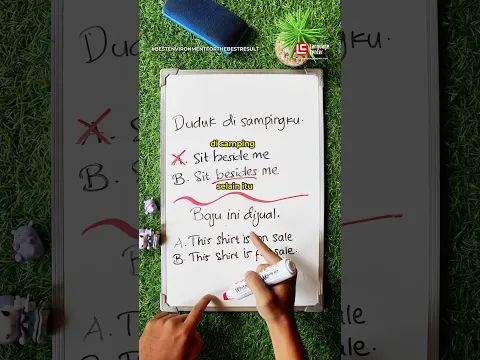 #BESTENVIRONMENTFORTHEBESTRESULT
Language
Center
Duduk di sampingku.
di samping
A. Sit beside me
B. Sit besides me
selain itu
Baju ini dijual.
A. This shirt is on sale
B. This shirt is for sale.
A. This
B. This
ale
sale.